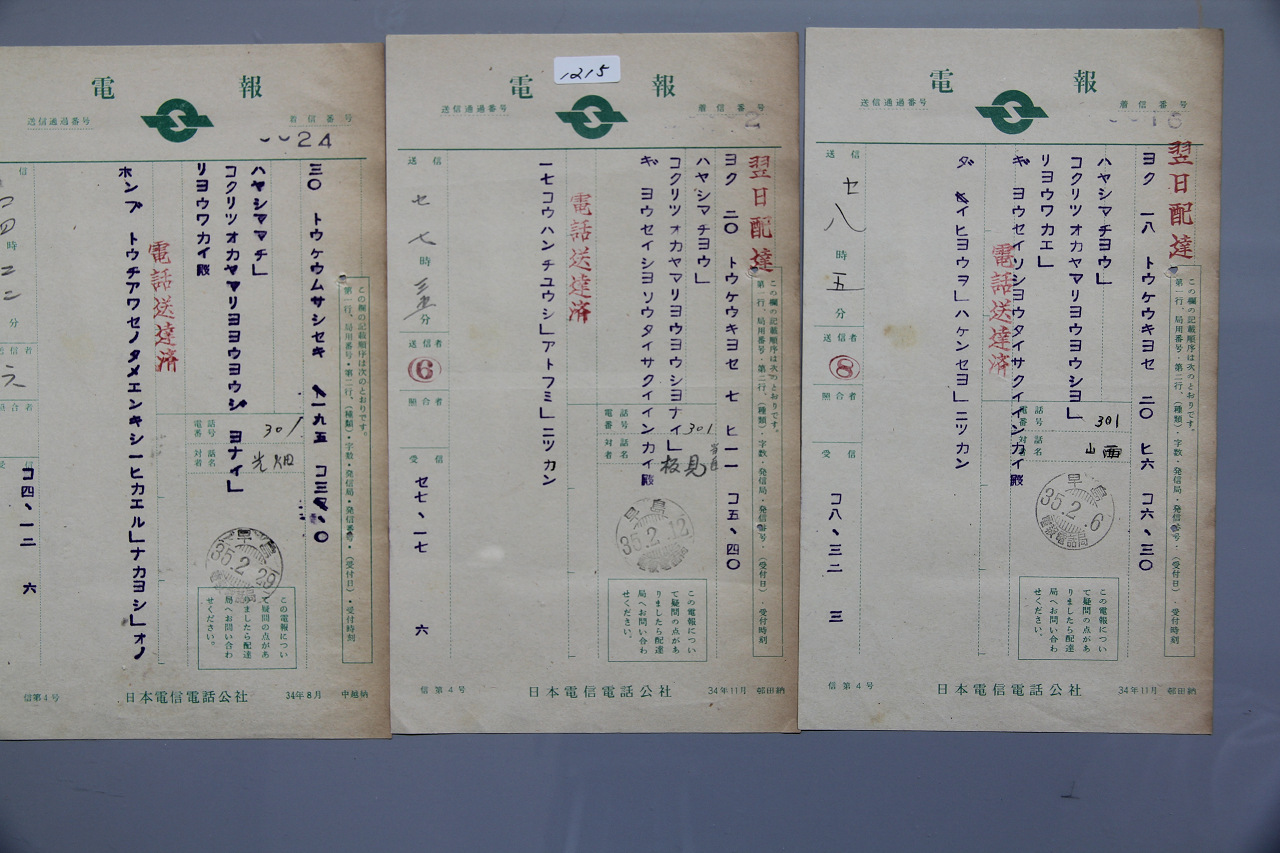 電報
送信通過番号
着信番号
16
翌日配達
ヨク 一八 トウケウキヨセ 二〇 ヒ六 コ六、三〇
ハヤシマチヨウ」
コクリツオカヤマリヨウヨウシヨ」
リヨウワカエ」
ギ ヨウセイソシヨウタイサクイインカイ殿
電話送達済
ダ イヒヨウヲ」ハケンセヨ」ニツカン
この欄の記載順序は次のとおりです。
第一行、局用番号・第二行、(種類)・字数・発信局・発信番号・(受付日)・受付時刻
電話番号
301
対話者名
山西
早島
35.2.6
電報電話局
送信
セ八時五分
送信者
8
照合者
受信
コ八、三二 三
この電報につい
て疑問の点があ
りましたら配達
局へお問い合わ
せください。
信第4号
日本電信電話公社
34年11月
1215
電報
送信通過番号
着信番号
2
翌日配達
ヨク 二〇 トウケウキヨセ 七 ヒ一一 コ五、四〇
ハヤシマチヨウ」
コクリツオカヤマリヨウヨウシヨナイ」
ギ ヨウセイシヨソウタイサクイインカイ殿
電話送達済
一七コウハンチユウシ」アトフミ」ニツカン
この欄の記載順序は次のとおりです。
第一行、局用番号・第二行、(種類)・字数・発信局・発信番号・(受付日)・受付時刻
電話番号
301
対話者名
板見
早島
35.2.12
電報電話局
送信
セ七時三五分
送信者
6
照合者
受信
セ七、一七 六
この電報につい
て疑問の点があ
りましたら配達
局へお問い合わ
せください。
信第4号
日本電信電話公社
34年11月
電報
送信通過番号
着信番号
24
三〇 トウケウムサシセキ 一九五
ハヤシママチ」
コクリツオカヤマリヨヨウヨウシ ヨナイ」
リヨウワカイ殿
電話送達済
ホンブ トウチアワセノタメエンキシーヒカエル」ナカヨシ」オノ
この欄の記載順序は次のとおりです。
第一行、局用番号・第二行、(種類)・字数・発信局・発信番号・(受付日)・受付時刻
電話番号
301
対話者名
光畑
早島
35.2.29
信
時二二分
送信者
六
照合者
受信
コ四、一二 六
この電報につい
て疑問の点があ
りましたら配達
局へお問い合わ
せください。
信第4号
日本電信電話公社
34年8月
中越納